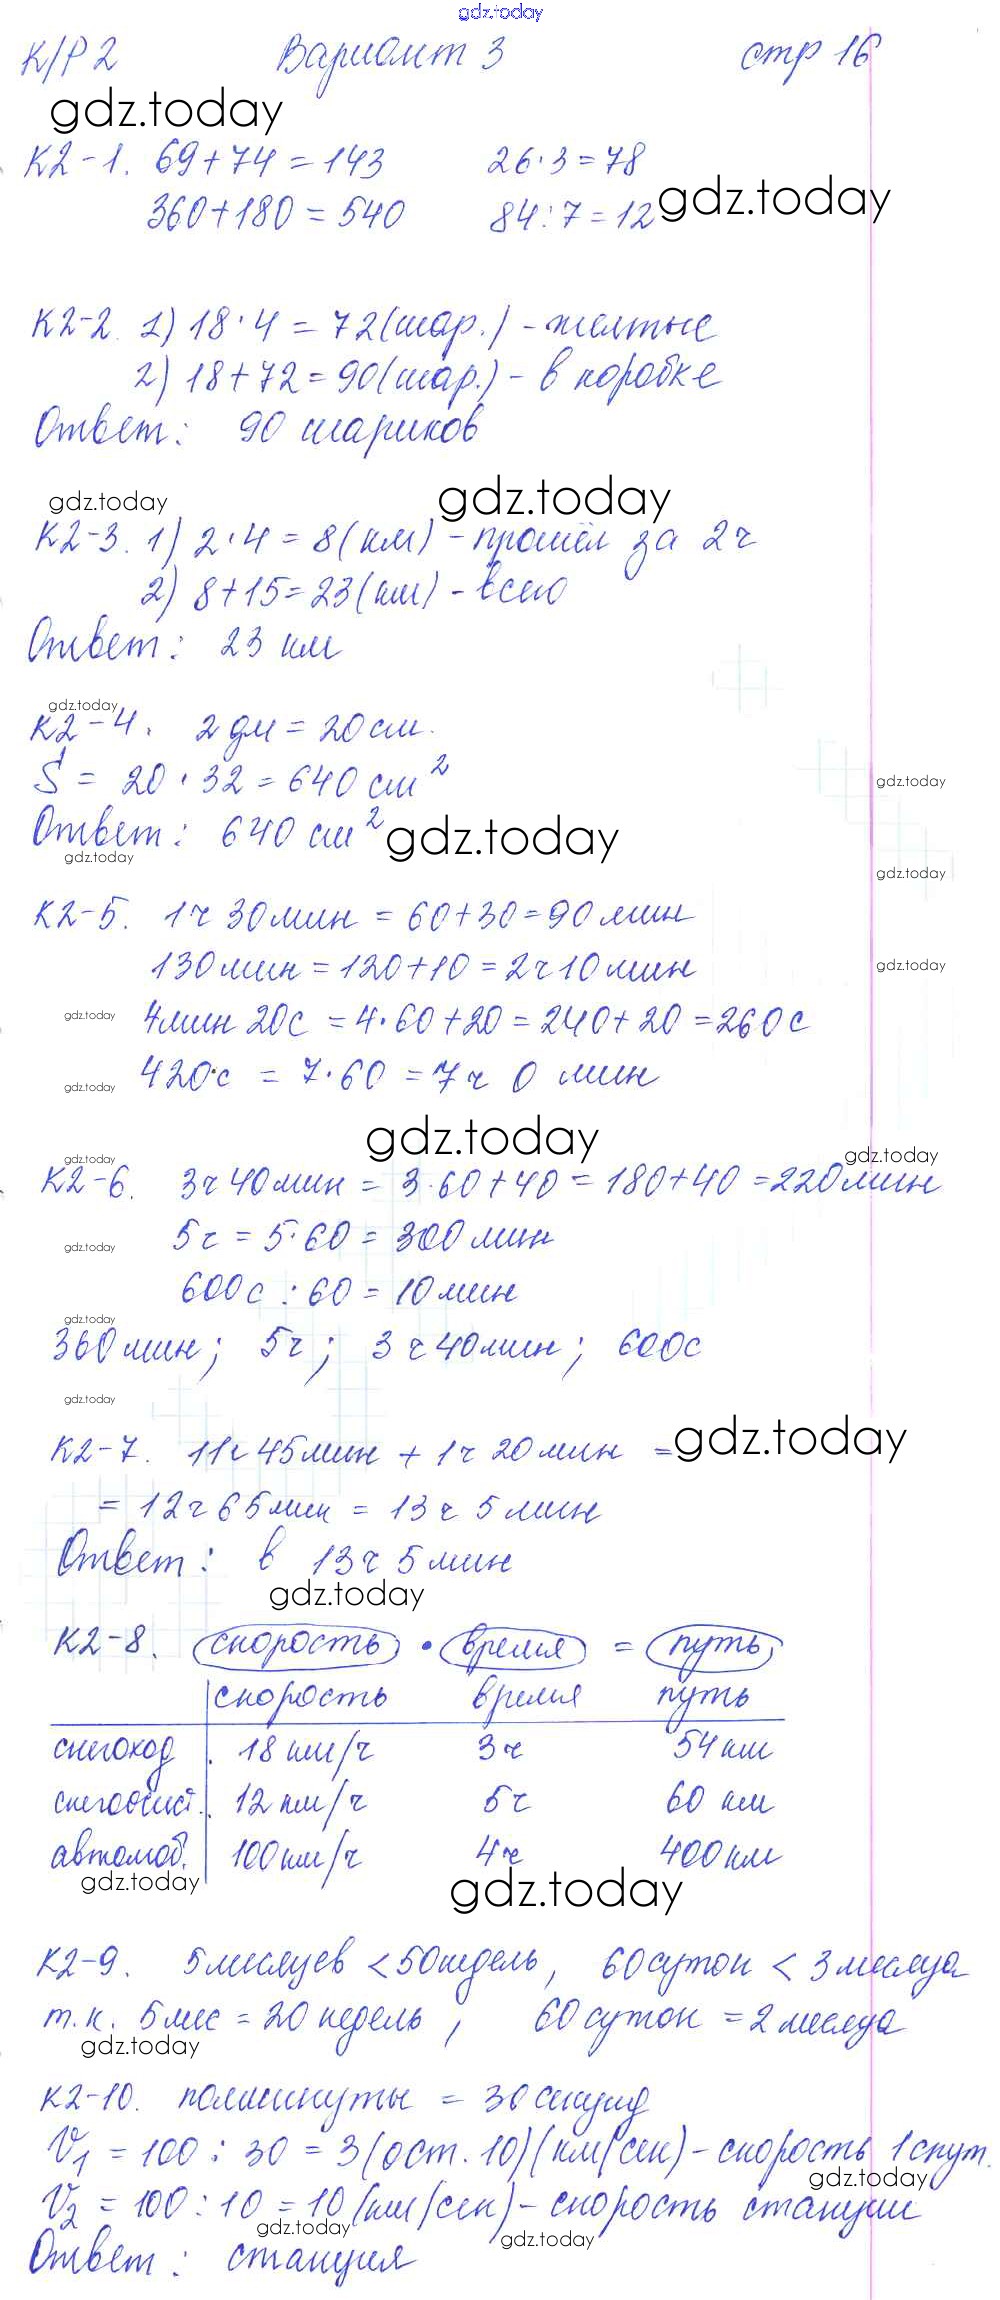 gdz.today
К/Р 2 Вариант 3 стр 16
gdz.today
К2-1. 69+74=143 26·3=78
360+180=540 84:7=12 gdz.today
К2-2. 1) 18·4=72(шар.)-желтые
2) 18+72=90(шар.)-в коробке
Ответ: 90 шариков
gdz.today gdz.today
К2-3. 1) 2·4=8(км)-прошёл за 2ч
2) 8+15=23(км)-всего
Ответ: 23 км
gdz.today
К2-4. 2дм=20см.
S = 20·32=640 см²
gdz.today
Ответ: 640 см² gdz.today
gdz.today
gdz.today
К2-5. 1ч 30мин = 60+30=90мин
130мин=120+10=2ч10мин
gdz.today
gdz.today 4мин 20с =4·60+20=240+20=260с
gdz.today 420с = 7·60 =7ч 0 мин
gdz.today
gdz.today gdz.today
К2-6. 3ч40мин = 3·60+40=180+40=220мин
gdz.today 5ч=5·60=300мин
600с:60=10мин
gdz.today
360мин; 5ч; 3ч40мин; 600с
gdz.today
К2-7. 11ч45мин + 1ч20мин = gdz.today
= 12ч65мин = 13ч 5мин
Ответ: в 13ч 5мин
gdz.today
К2-8. скорость · время = путь
скорость время путь
снегоход 18км/ч 3ч 54км
12км/ч 5ч 60 км
автомоб. 100км/ч 4ч 400км
gdz.today gdz.today
К2-9. 5месяцев<50недель, 60суток < 3месяца
т.к. 5мес=20недель, 60суток =2месяца
gdz.today
К2-10. полминуты = 30секунд
V₁ = 100:30=3(ост.10)(км/сек)-скорость 1спут.
gdz.today
V₂ = 100:10=10(км/сек)-скорость станции
gdz.today gdz.today
Ответ: станция